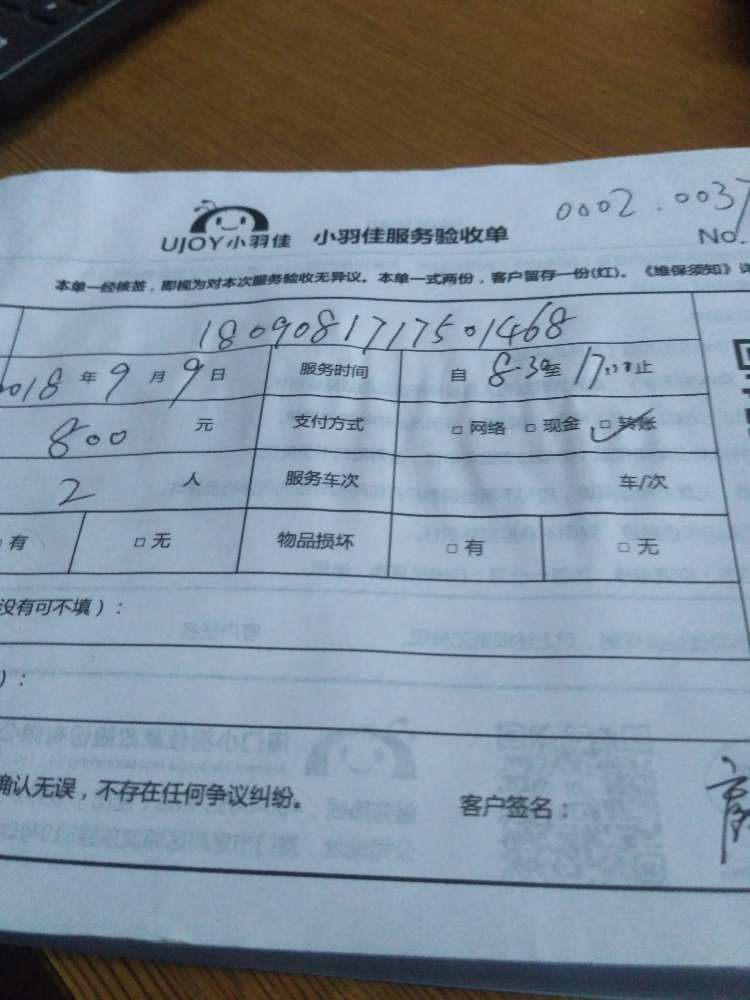 0002.0037
UJOY小羽佳 小羽佳服务验收单 No.
本单一经核签，即视为对本次服务验收无异议。本单一式两份，客户留存一份(红)。《维保须知》详
1809081717501468
2018年9月9日 服务时间 自8:30至17:00止
800元 支付方式 □网络 □现金 ☑转账
2人 服务车次 车/次
□有 □无 物品损坏 □有 □无
没有可不填）：
）：
确认无误，不存在任何争议纠纷。 客户签名：